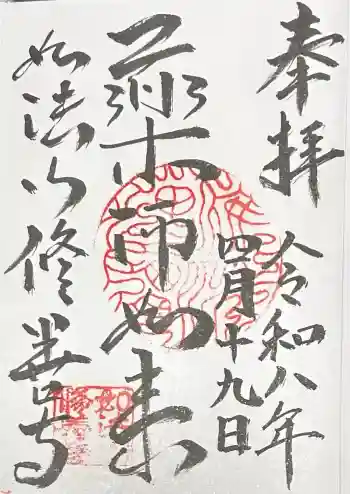 奉拝
令和八年
四月十九日
薬師如来
如法山修善寺